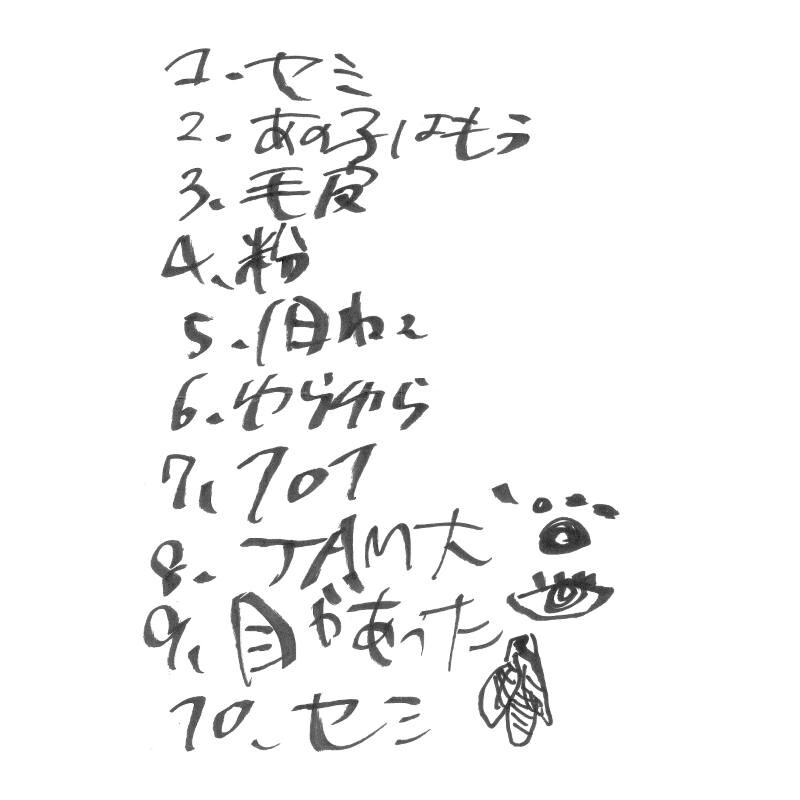 1. セミ
2. あの子はもう
3. 毛皮
4. 粉
5. 1日ねえ
6. ゆらゆら
7. 707
8. JAM大
9. 目があった
10. セミ